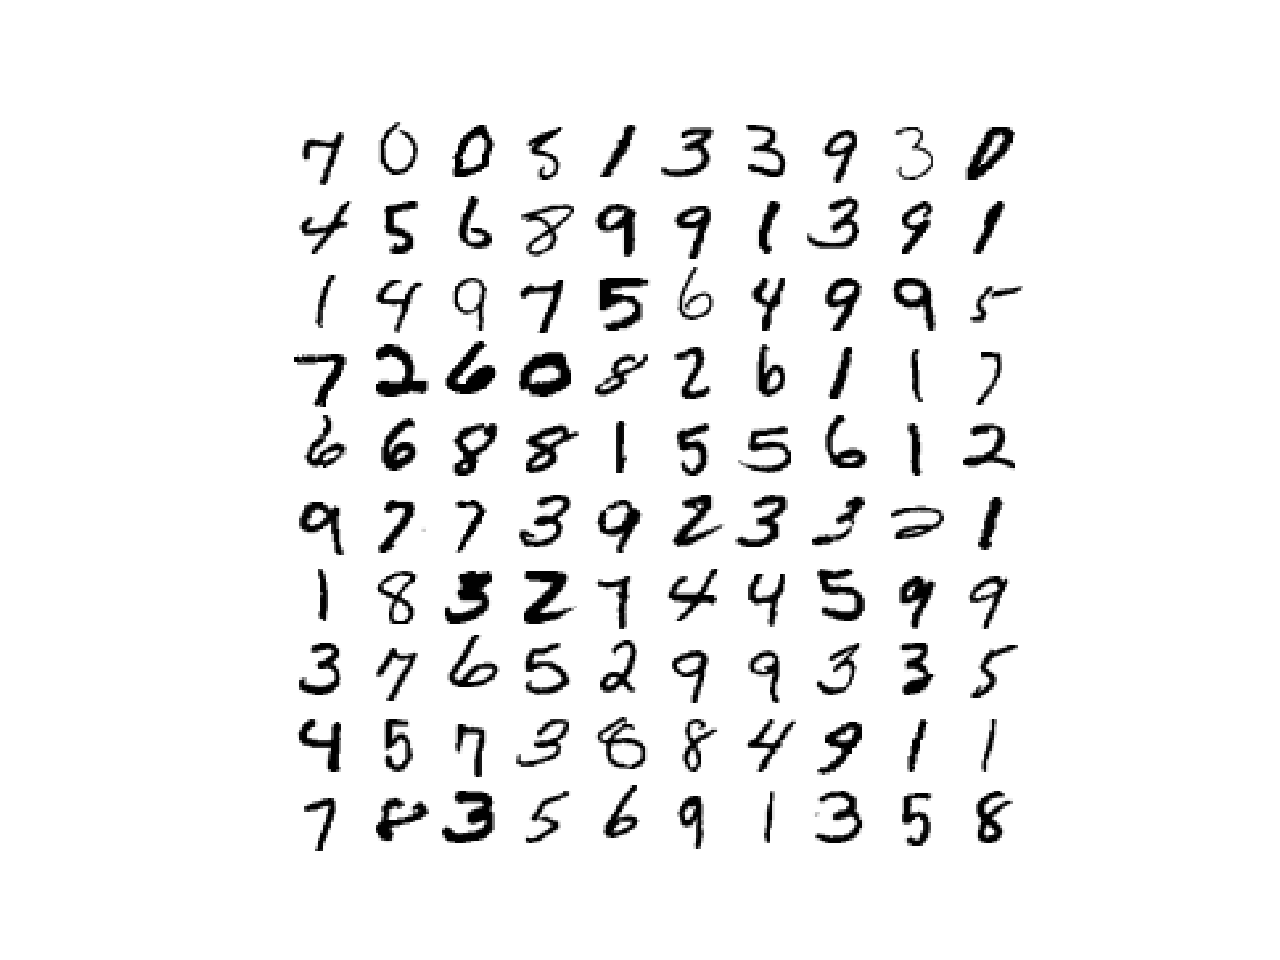 7 0 0 5 1 3 3 9 3 0
4 5 6 8 9 9 1 3 9 1
1 4 9 7 5 6 4 9 9 5
7 2 6 0 8 2 6 1 1 7
6 6 8 8 1 5 5 6 1 2
9 7 7 3 9 2 3 3 2 1
1 8 3 2 7 4 4 5 9 9
3 7 6 5 2 9 9 3 3 5
4 5 7 3 8 8 4 9 1 1
7 8 3 5 6 9 1 3 5 8